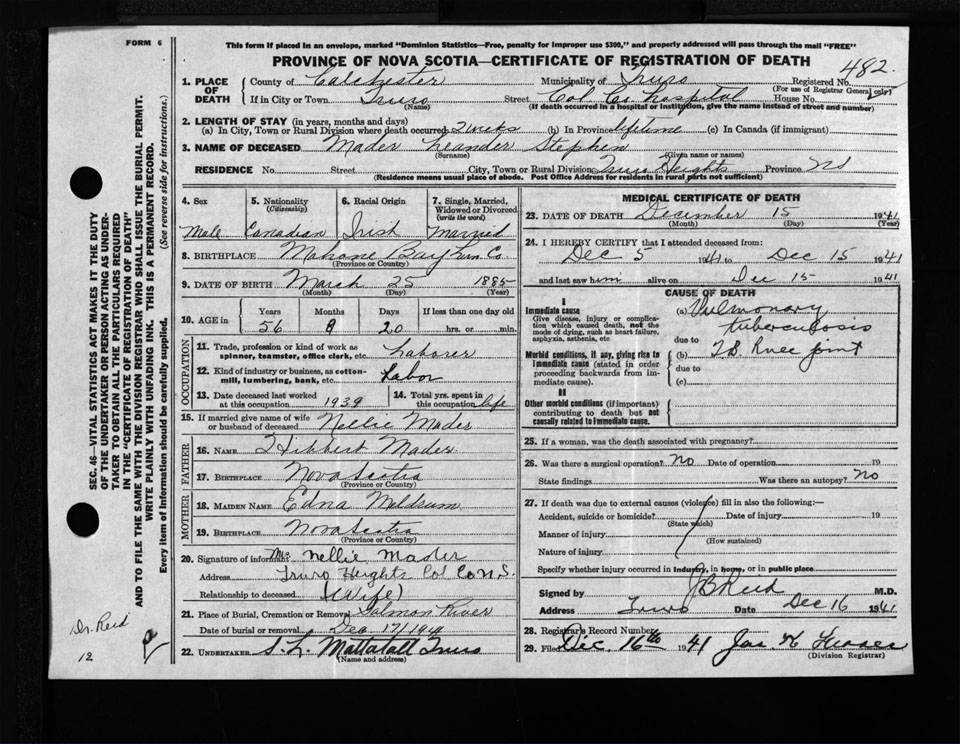 FORM 6
This form if placed in an envelope, marked "Dominion Statistics—Free, penalty for improper use $300," and properly addressed will pass through the mail "FREE"
PROVINCE OF NOVA SCOTIA—CERTIFICATE OF REGISTRATION OF DEATH
482.
1. PLACE OF DEATH County of Colchester Municipality of Truro Registered No.
(For use of Registrar General only)
If in City or Town Truro Street Col Co. hospital House No.
(Name) (If death occurred in a hospital or institution, give the name instead of street and number)
2. LENGTH OF STAY (in years, months and days)
(a) In City, Town or Rural Division where death occurred 2 weeks (b) In Province lifetime (c) In Canada (if immigrant)
3. NAME OF DECEASED Mader Leander Stephen
(Surname) (Given name or names)
RESIDENCE No. Street City, Town or Rural Division Truro Heights Province NS
(Residence means usual place of abode. Post Office Address for residents in rural parts not sufficient)
4. Sex 5. Nationality (Citizenship) 6. Racial Origin 7. Single, Married, Widowed or Divorced (write the word)
Male Canadian Irish Married
8. BIRTHPLACE Mahone Bay Lun. Co.
(Province or Country)
9. DATE OF BIRTH March 25 1885
(Month) (Day) (Year)
10. AGE in Years Months Days If less than one day old
56 8 20 hrs. or min.
OCCUPATION
11. Trade, profession or kind of work as spinner, teamster, office clerk, etc. Laborer
12. Kind of industry or business, as cotton-mill, lumbering, bank, etc. Labor
13. Date deceased last worked at this occupation 1939 14. Total yrs. spent in this occupation life
15. If married give name of wife or husband of deceased Nellie Mader
FATHER
16. NAME Hibbert Mader
17. BIRTHPLACE Nova Scotia
(Province or Country)
MOTHER
18. MAIDEN NAME Edna Meldrum
19. BIRTHPLACE Nova Scotia
(Province or Country)
20. Signature of informant Mrs Nellie Mader
Address Truro Heights Col Co N.S.
Relationship to deceased (Wife)
21. Place of Burial, Cremation or Removal Salmon River
Date of burial or removal Dec 17/1941
22. UNDERTAKER S. L. Mattatall Truro
(Name and address)
MEDICAL CERTIFICATE OF DEATH
23. DATE OF DEATH December 15 1941
(Month) (Day) (Year)
24. I HEREBY CERTIFY that I attended deceased from:
Dec 5 1941 to Dec 15 1941
and last saw him alive on Dec 15 1941
CAUSE OF DEATH
I
Immediate cause
Give disease, injury or complication which caused death, not the mode of dying, such as heart failure, asphyxia, asthenia, etc
(a) Pulmonary tuberculosis
due to
Morbid conditions, if any, giving rise to immediate cause (stated in order proceeding backwards from immediate cause).
(b) T.B. Knee joint
due to
(c)
II
Other morbid conditions (if important) contributing to death but not causally related to immediate cause.
25. If a woman, was the death associated with pregnancy?
26. Was there a surgical operation? No Date of operation 19
State findings Was there an autopsy? No
27. If death was due to external causes (violence) fill in also the following:—
Accident, suicide or homicide? Date of injury 19
(State which)
Manner of injury
(How sustained)
Nature of injury
Specify whether injury occurred in industry, in home, or in public place
Signed by J B Reid M.D.
Address Truro Date Dec 16 1941
28. Registrar's Record Number
29. Filed Dec. 16th 1941 Jas. H.
(Division Registrar)
SEC. 46—VITAL STATISTICS ACT MAKES IT THE DUTY
OF THE UNDERTAKER OR PERSON ACTING AS UNDER-
TAKER TO OBTAIN ALL THE PARTICULARS REQUIRED
IN THE "CERTIFICATE OF REGISTRATION OF DEATH"
AND TO FILE THE SAME WITH THE DIVISION REGISTRAR WHO SHALL ISSUE THE BURIAL PERMIT.
WRITE PLAINLY WITH UNFADING INK. THIS IS A PERMANENT RECORD.
Every item of information should be carefully supplied. (See reverse side for instructions.)
Dr. Reid
12